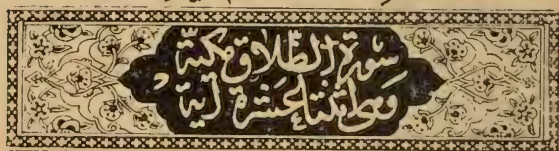 سُورَةُ الطَّلَاقِ مَكِّيَّةٌ
وَهِىَ ثِنْتَا عَشَرَةَ اٰيَةً